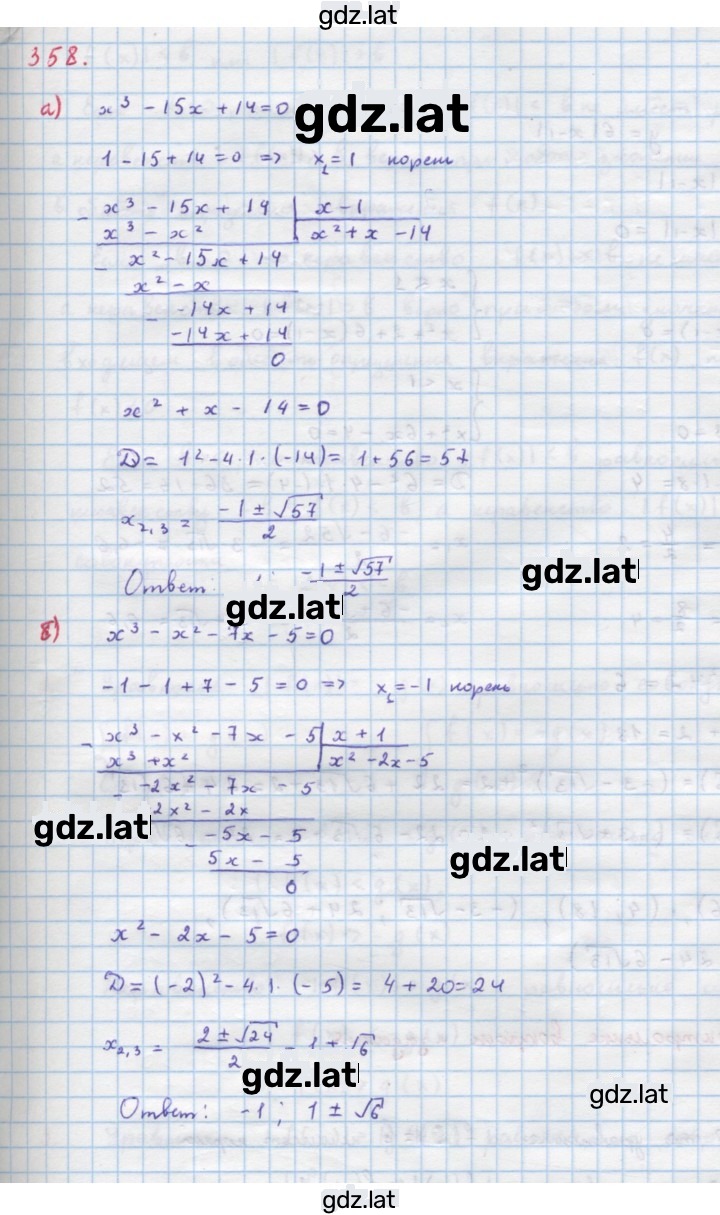 gdz.lat
358.
а) x³ - 15x + 14 = 0
gdz.lat
1 - 15 + 14 = 0 => x₁ = 1 корень
- x³ - 15x + 14 | x - 1
x³ - x² | x² + x - 14
- x² - 15x + 14
x² - x
- -14x + 14
-14x + 14
0
x² + x - 14 = 0
D = 1² - 4·1·(-14) = 1 + 56 = 57
x₂,₃ = (-1 ± √57)/2
Ответ: ; (-1 ± √57)/2
gdz.lat
gdz.lat
б) x³ - x² - 7x - 5 = 0
-1 - 1 + 7 - 5 = 0 => x₁ = -1 корень
- x³ - x² - 7x - 5 | x + 1
x³ + x² | x² - 2x - 5
- -2x² - 7x - 5
2x² - 2x
gdz.lat
- -5x - 5
5x - 5
gdz.lat
0
x² - 2x - 5 = 0
D = (-2)² - 4·1·(-5) = 4 + 20 = 24
x₂,₃ = (2 ± √24)/2 - 1 + √6
gdz.lat
gdz.lat
Ответ: -1; 1 ± √6
gdz.lat